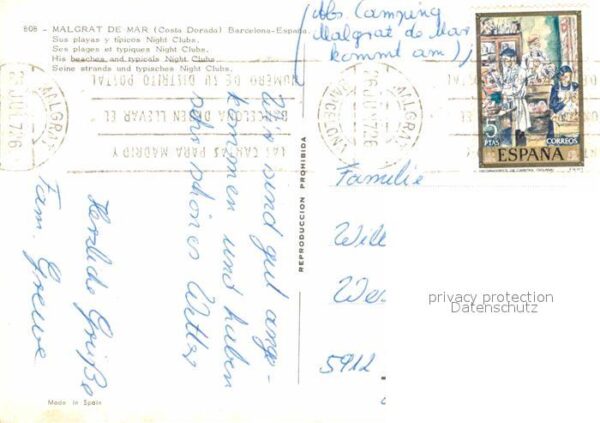 808 - MALGRAT DE MAR (Costa Dorada) Barcelona-España.
Sus playas y típicos Night Clubs.
Ses plages et typiques Night Clubs.
His beaches and typicals Night Clubs.
Seine strands und typisches Night Clubs.
(Abs. Camping
Malgrat de Mar
kommt am)
MALGRAT
NUMERO DE SU DISTRITO POSTAL
BARCELONA DEBEN LLEVAR EL
LAS CARTAS PARA MADRID Y
MALGRAT
BARCELONA
5
PTAS
CORREOS
ESPAÑA
Wir sind gut ange-
kommen und haben
schönes Wetter
Herzliche Grüße
Fam. Grewe
REPRODUCCION PROHIBIDA
Familie
Will
We
5912
privacy protection
Datenschutz
Made in Spain